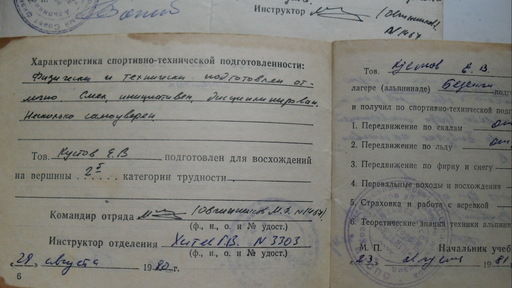 Инструктор (Овчинников
№1467
Характеристика спортивно-технической подготовленности:
Физически и технически подготовлен от-
лично. Смел, инициативен, дисциплинирован.
Несколько самоуверен.
Тов. Кустов Е.В подготовлен для восхождений
на вершины 2й категории трудности
Командир отряда (Овчинников М.А. №1467)
(ф., и., о. и № удост.)
Инструктор отделения №3303
(ф., н., о. и № удост.)
„29„ августа 1980г.
6
Тов. Кустов Е. В
лагере (альпиниаде) Безенги
и получил по спортивно-технической подгот
1. Передвижение по скалам от
2. Передвижение по льду от
3. Передвижение по фирну и снегу
4. Перевальные походы и восхождения
5. Страховка и работа с веревкой
6. Теоретические знания техники альпини
М. П. Начальник учеб
„23„ августа 1981